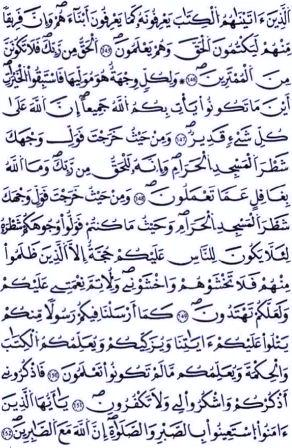 اَلَّذِينَ ءَاتَيْنَٰهُمُ الْكِتَٰبَ يَعْرِفُونَهُۥ كَمَا يَعْرِفُونَ أَبْنَآءَهُمْ وَإِنَّ فَرِيقًا
مِّنْهُمْ لَيَكْتُمُونَ الْحَقَّ وَهُمْ يَعْلَمُونَ ١٤٥ اَلْحَقُّ مِن رَّبِّكَ فَلَا تَكُونَنَّ
مِنَ الْمُمْتَرِينَ ١٤٦ وَلِكُلٍّ وِجْهَةٌ هُوَ مُوَلِّيهَا فَاسْتَبِقُوا الْخَيْرَٰتِ
أَيْنَ مَا تَكُونُوا يَأْتِ بِكُمُ اللَّهُ جَمِيعًا إِنَّ اللَّهَ عَلَىٰ
كُلِّ شَيْءٍ قَدِيرٌ ١٤٧ وَمِنْ حَيْثُ خَرَجْتَ فَوَلِّ وَجْهَكَ
شَطْرَ الْمَسْجِدِ الْحَرَامِ وَإِنَّهُۥ لَلْحَقُّ مِن رَّبِّكَ وَمَا اللَّهُ
بِغَٰفِلٍ عَمَّا تَعْمَلُونَ ١٤٨ وَمِنْ حَيْثُ خَرَجْتَ فَوَلِّ وَجْهَكَ
شَطْرَ الْمَسْجِدِ الْحَرَامِ وَحَيْثُ مَا كُنتُمْ فَوَلُّوا وُجُوهَكُمْ شَطْرَهُۥ
لِيَلَّا يَكُونَ لِلنَّاسِ عَلَيْكُمْ حُجَّةٌ إِلَّا الَّذِينَ ظَلَمُوا
مِنْهُمْ فَلَا تَخْشَوْهُمْ وَاخْشَوْنِي وَلِأُتِمَّ نِعْمَتِي عَلَيْكُمْ
وَلَعَلَّكُمْ تَهْتَدُونَ ١٤٩ كَمَا أَرْسَلْنَا فِيكُمْ رَسُولًا مِّنكُمْ
يَتْلُوا عَلَيْكُمْ ءَايَٰتِنَا وَيُزَكِّيكُمْ وَيُعَلِّمُكُمُ الْكِتَٰبَ
وَالْحِكْمَةَ وَيُعَلِّمُكُم مَّا لَمْ تَكُونُوا تَعْلَمُونَ ١٥٠ فَاذْكُرُونِي
أَذْكُرْكُمْ وَاشْكُرُوا لِي وَلَا تَكْفُرُونِ ١٥١ يَٰأَيُّهَا الَّذِينَ
ءَامَنُوا اسْتَعِينُوا بِالصَّبْرِ وَالصَّلَوٰةِ إِنَّ اللَّهَ مَعَ الصَّٰبِرِينَ ١٥٢